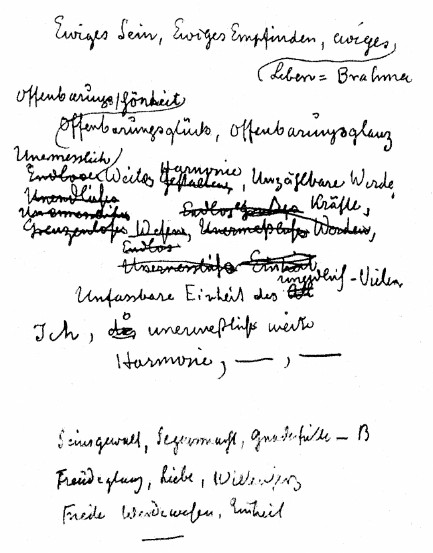 Ewiges Sein, Ewiges Empfinden, ewiges,
Leben = Brahma
Offenbarungsschönheit
Offenbarungsglück, Offenbarungsglanz
Unermesslich
Endlose Weite, Harmonie Gestalten, Unzählbare Werde
Unendliches
Kräfte,
Grenzenloses Wesen, Unermeßliches Werden,
Endlos
Unermessliches Einheit
unendlich-Vielen
Unfassbare Einheit des All
Ich, unermeßliche weite
Harmonie, — , —
Seinsgewalt, Segensmacht, Gnadenfülle – B
Freudeglanz, Liebe,
Freude Werdewesen, Einheit